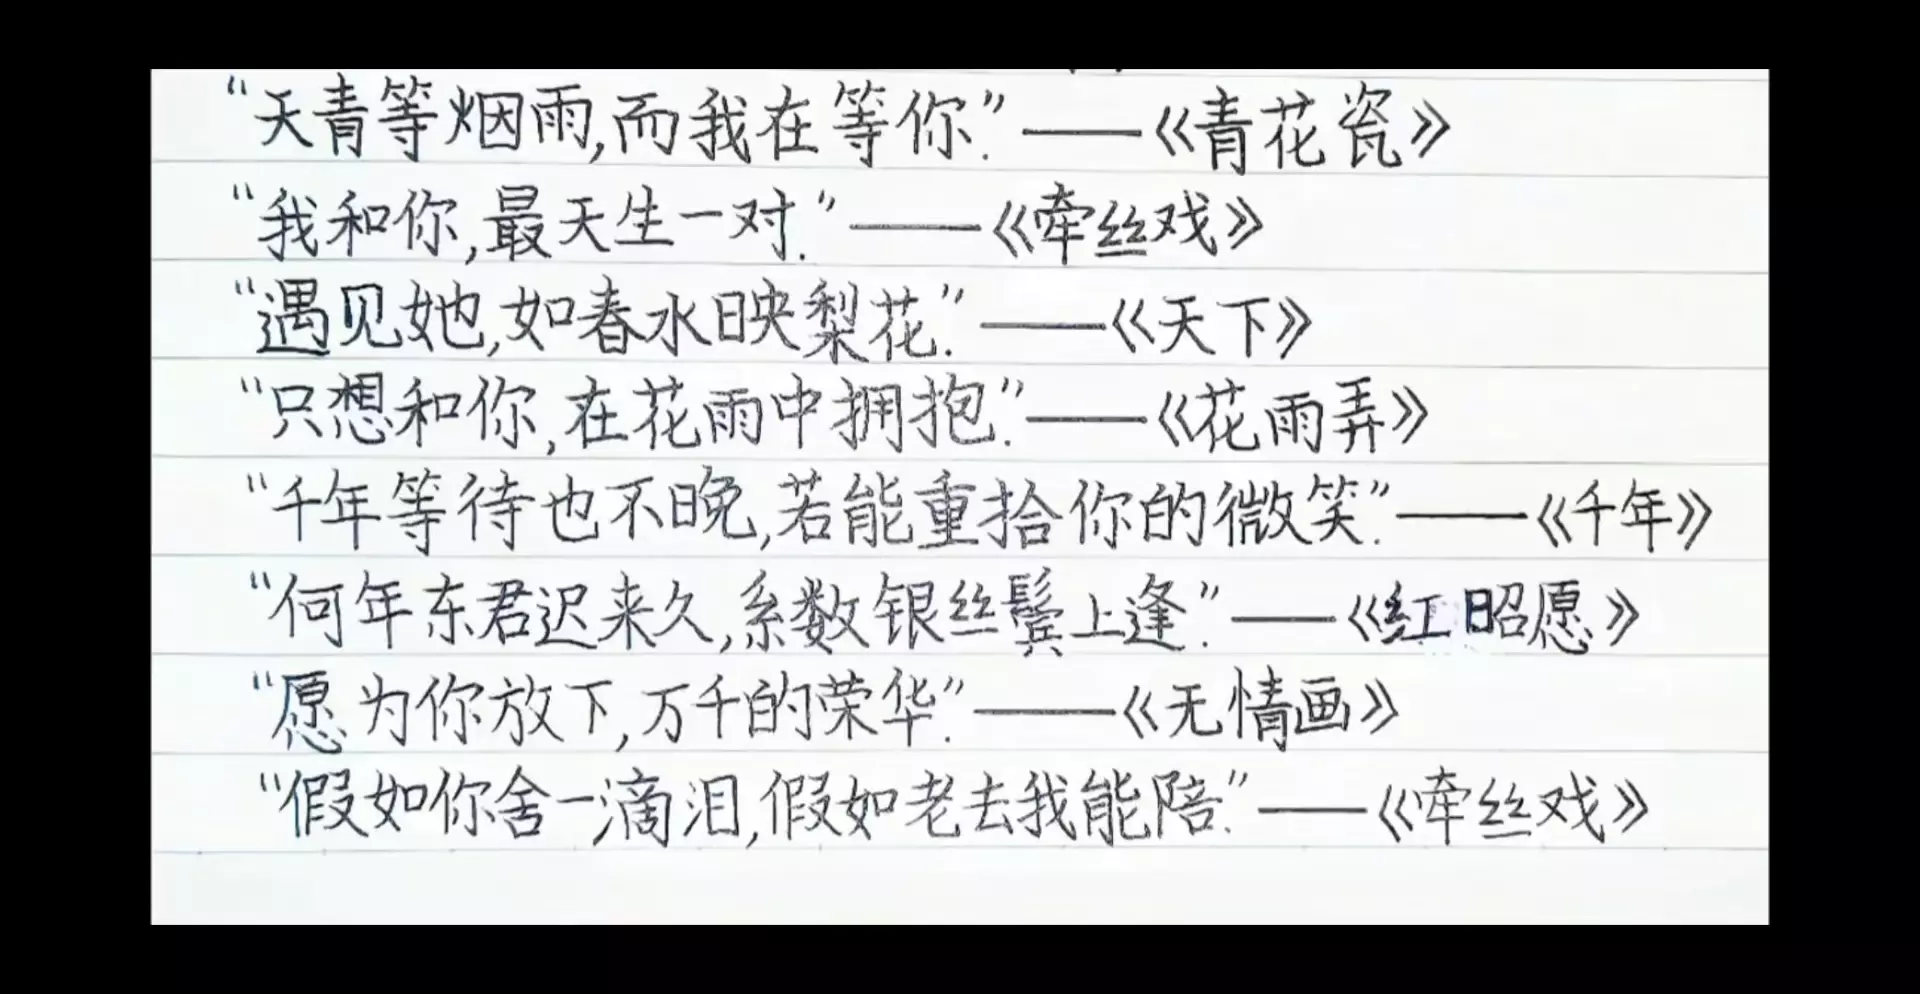 “天青等烟雨,而我在等你.”——《青花瓷》
“我和你,最天生一对.”——《牵丝戏》
“遇见她,如春水映梨花.”——《天下》
“只想和你,在花雨中拥抱.”——《花雨弄》
“千年等待也不晚,若能重拾你的微笑.”——《千年》
“何年东君迟来久,系数银丝鬓上逢.”——《红昭愿》
“愿为你放下,万千的荣华.”——《无情画》
“假如你舍一滴泪,假如老去我能陪.”——《牵丝戏》